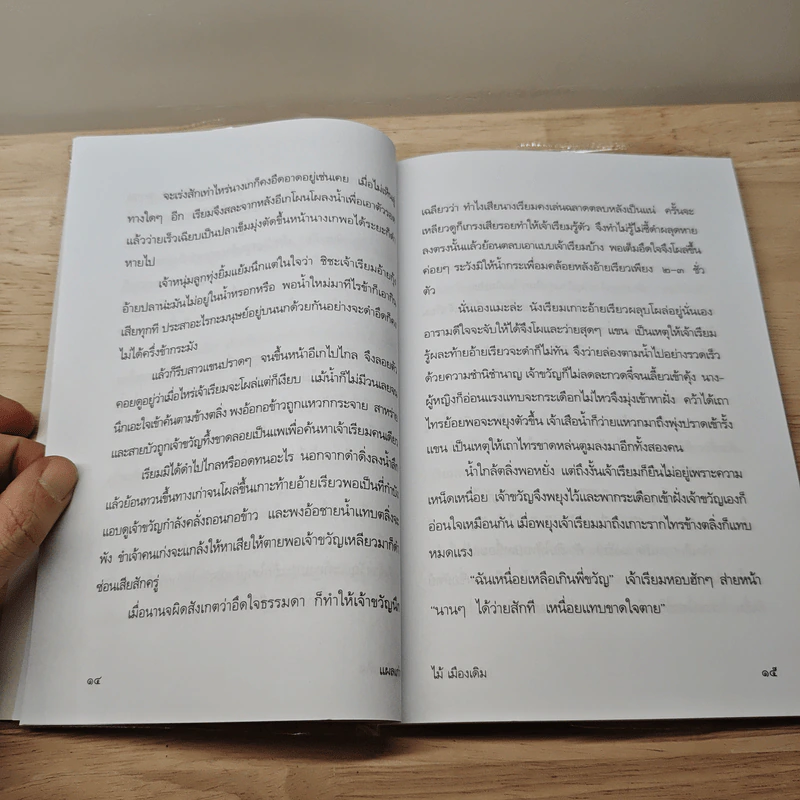 จะเร่งสักเท่าไหร่นางเกก็คงอืดอาดอยู่เช่นเคย เมื่อไม่เห็น
ทางใดๆ อีก เรียมจึงสละจากหลังอีเกโผนโผลงน้ำเพื่อเอาตัว
แล้วว่ายเร็วเฉียบเป็นปลาเข็มมุ่งตัดขึ้นหน้านางเกพอได้ระยะก็
หายไป
เจ้าหนุ่มลูกทุ่งยิ้มแย้มนึกแต่ในใจว่า ชิชะเจ้าเรียมอ้าย
อ้ายปลาน่ะมันไม่อยู่ในน้ำหรอกหรือ พอน้ำใหม่มาทีไรข้าก็เอา
เสียทุกที ประสาอะไรกะมนุษย์อยู่บนนกด้วยกันอย่างจะดำอึด
ไม่ได้ครึ่งข้ากระมัง
แล้วก็รีบสาวแขนปราดๆ จนขึ้นหน้าอีเกไปไกล จึงลอย
คอยดูอยู่ว่าเมื่อไหร่เจ้าเรียมจะโผล่แต่ก็เงียบ แม้น้ำก็ไม่มีวนเลย
นึกเอะใจเข้าค้นตามข้างตลิ่ง พงอ้อกอข้าวถูกแหวกกระจาย สาหร่าย
และสายบัวถูกเจ้าขวัญทึ้งขาดลอยเป็นแพเพื่อค้นหาเจ้าเรียมคนเดียว
เรียมมิได้ดำไปไกลหรืออดทนอะไร นอกจากดำดิ่งลงน้ำลึก
แล้วย้อนทวนขึ้นทางเก่าจนโผล่ขึ้นเกาะท้ายอ้ายเรียวพอเป็นที่กำบัง
แอบดูเจ้าขวัญกำลังคลั่งถอนกอข้าว และพงอ้อชายน้ำแทบตลิ่งจะ
พัง ขำเจ้าคนเก่งจะแกล้งให้หาเสียให้ตายพอเจ้าขวัญเหลียวมาก็ดำ
ซ่อนเสียสักครู่
เมื่อนานจผิดสังเกตว่าอึดใจธรรมดา ก็ทำให้เจ้าขวัญนึก
๑๔
แผลเก่า
เฉลียวว่า ทำไงเสียนางเรียมคงเล่นฉลาดตลบหลังเป็นแน่ ครั้นจะ
เหลียวดูก็เกรงเสียรอยทำให้เจ้าเรียมรู้ตัว จึงทำไม่รู้ไม่ชี้ดำผลุดหาย
ลงตรงนั้นแล้วย้อนตลบเอาแบบเจ้าเรียมบ้าง พอเต็มอึดใจจึงโผล่ขึ้น
ค่อยๆ ระวังมิให้น้ำกระเพื่อมคล้อยหลังอ้ายเรียวเพียง ๒-๓ ชั่ว
ตัว
นั่นเองแมะล่ะ นังเรียมเกาะอ้ายเรียวผลุบโผล่อยู่นั่นเอง
อารามดีใจจะจับให้ได้จึงโผและว่ายสุดๆ แขน เป็นเหตุให้เจ้าเรียม
รู้ผละท้ายอ้ายเรียวจะดำก็ไม่ทัน จึงว่ายล่องตามน้ำไปอย่างรวดเร็ว
ด้วยความชำนิชำนาญ เจ้าขวัญก็ไม่ลดละกวดจี๋จนเลี้ยวเข้าคุ้ง นาง-
ผู้หญิงก็อ่อนแรงแทบจะกระเดือกไม่ไหวจึงมุ่งเข้าหาฝั่ง คว้าได้เถา
ไทรย้อยพอจะพยุงตัวขึ้น เจ้าเสือน้ำก็ว่ายแหวกมาถึงพุ่งปราดเข้ารั้ง
แขน เป็นเหตุให้เถาไทรขาดหล่นตูมลงมาอีกทั้งสองคน
น้ำใกล้ตลิ่งพอหยั่ง แต่ถึงงั้นเจ้าเรียมก็ยืนไม่อยู่เพราะความ
เหน็ดเหนื่อย เจ้าขวัญจึงพยุงไว้และพากระเดือกเข้าฝั่งเจ้าขวัญเองก็
อ่อนใจเหมือนกัน เมื่อพยุงเจ้าเรียมมาถึงเกาะรากไทรข้างตลิ่งก็แทบ
หมดแรง
“ฉันเหนื่อยเหลือเกินพี่ขวัญ” เจ้าเรียมหอบฮักๆ ส่ายหน้า
“นานๆ ได้ว่ายสักที เหนื่อยแทบขาดใจตาย”
ไม้ เมืองเดิม
๑๕